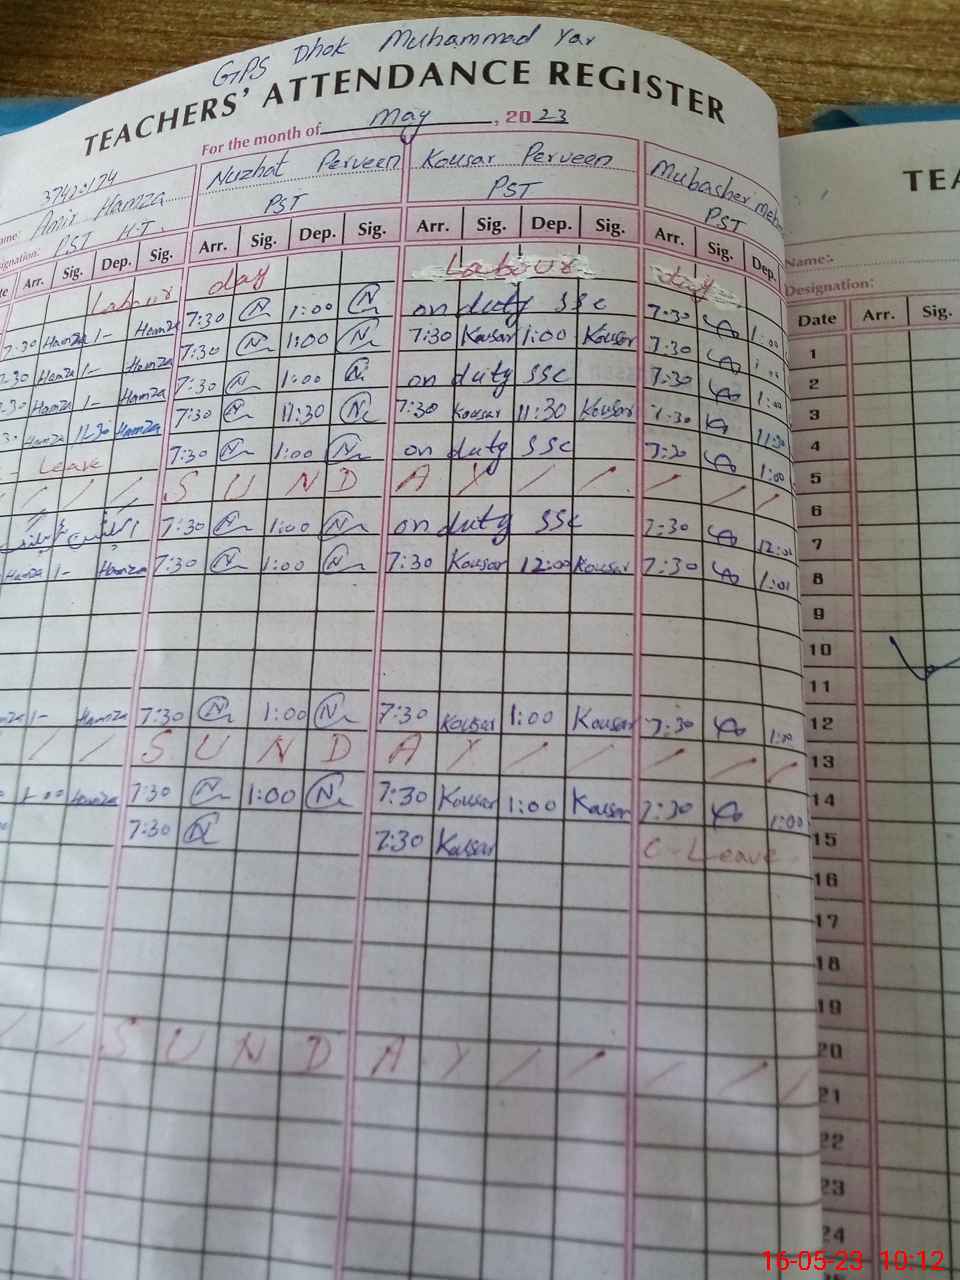 GPS Dhok Muhammad Yar
TEACHERS' ATTENDANCE REGISTER
For the month of May, 2023
37420174
Amir Hamza Nuzhat Perveen Kousar Perveen Mubasher
PST H.T. PST PST PST
Arr. Sig. Dep. Sig. Arr. Sig. Dep. Sig. Arr. Sig. Dep. Sig. Arr. Sig. Dep.
Labour day Labour day
7:30 Hamza 1- Hamza 7:30 N 1:00 N on duty SSC 7:30 1:00
Hamza 1- Hamza 7:30 N 1:00 N 7:30 Kousar 1:00 Kousar 7:30
Hamza 1- Hamza 7:30 N 1:00 N on duty SSC 7:30 1:00
Hamza 11:30 Hamza 7:30 N 11:30 N 7:30 Kousar 11:30 Kousar 7:30 11:30
Leave 7:30 N 1:00 N on duty SSC 7:30 1:00
/ / / / S U N D A Y / / / / /
7:30 N 1:00 N on duty SSC 7:30 12:00
Hamza 1- Hamza 7:30 N 1:00 N 7:30 Kousar 12:00 Kousar 7:30 1:00
1- Hamza 7:30 N 1:00 N 7:30 Kousar 1:00 Kousar 7:30 1:00
/ / S U N D A Y / / / / /
1-00 Hamza 7:30 N 1:00 N 7:30 Kousar 1:00 Kousar 7:30 1:00
7:30 N 7:30 Kousar C-Leave
/ / S U N D A Y / / / / /
TEA
Name:-
Designation:
Date Arr. Sig.
1
2
3
4
5
6
7
8
9
10
11
12
13
14
15
16
17
18
19
20
21
22
23
24
16-05-23 10:12